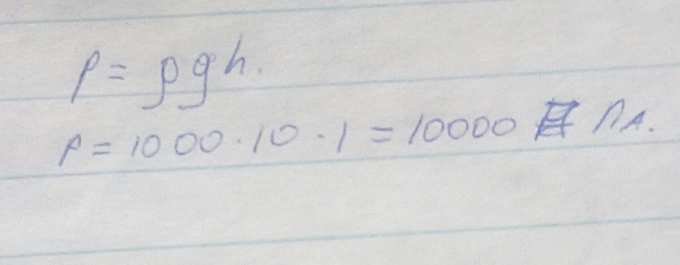 p = ρgh.
p = 1000 · 10 · 1 = 10000 Па.